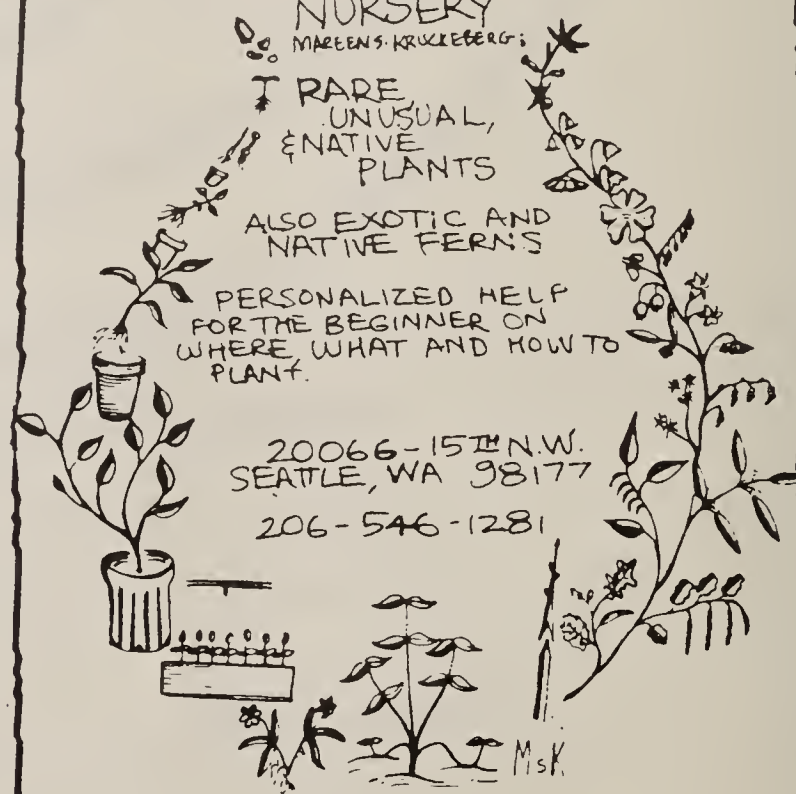 NURSERY
MAREEN S. KRUCKEBERG:
RARE,
UNUSUAL,
& NATIVE
PLANTS
ALSO EXOTIC AND
NATIVE FERNS
PERSONALIZED HELP
FOR THE BEGINNER ON
WHERE, WHAT AND HOW TO
PLANT.
20066-15TH N.W.
SEATTLE, WA 98177
206-546-1281
MsK